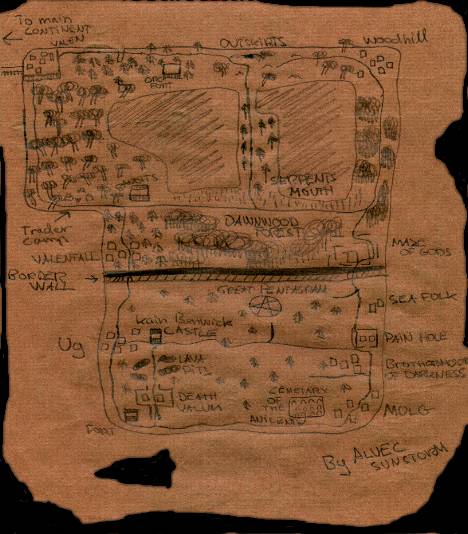 To main
CONTINENT
VALEN
OUTSKIRTS
Woodhill
ORC
FORT
GHOSTS
SERPENTS
MOUTH
Trader
Camp
DAWNWOOD
FOREST
VALENFALL
MAZE
OF GODS
BORDER
WALL
GREAT PENTAGRAM
SEA FOLK
Kain Banwick
CASTLE
Ug
PAIN HOLE
LAVA
PITS
BROTHERHOOD
OF DARKNESS
DEATH
VALUM
CEMETARY
OF
THE
ANCIENTS
MOLG
Fort
By ALVEC
SUNSTORM